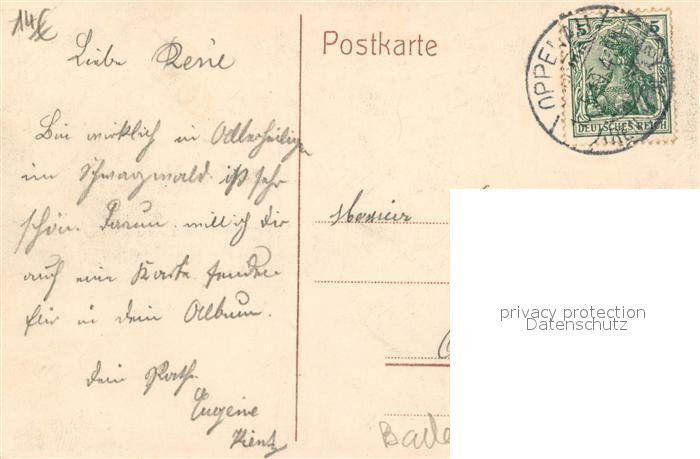 Liebe René
Bin wirklich in Allerheiligen
im Schwarzwald. ist sehr
schön. Darum will ich dir
auch eine Karte senden
für in dein Album.
dein
Eugène
Postkarte
OPPENAU
5 5
DEUTSCHES REICH
Monsieur
privacy protection
Datenschutz
Bade